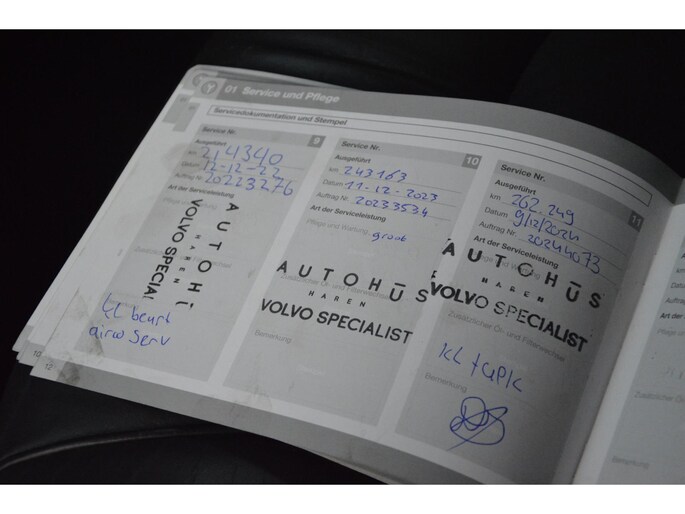 01 Service und Pflege
Servicedokumentation und Stempel
Service Nr. 9
Ausgeführt
km 214340
Datum 12-12-22
Auftrag Nr. 20223276
Art der Serviceleistung
Pflege und Wartung
AUTOHŪ
HAREN
VOLVO SPECIAL
kl beurt
airco serv
Service Nr. 10
Ausgeführt
km 243163
Datum 11-12-2023
Auftrag Nr. 20233534
Art der Serviceleistung
Pflege und Wartung
groot
AUTOHŪS
HAREN
VOLVO SPECIALIST
Bemerkung
Service Nr. 11
Ausgeführt
km 262.249
Datum 9/12/2024
Auftrag Nr. 20244073
Art der Serviceleistung
Pflege und Wartung
AUTOHŪS
HAREN
VOLVO SPECIALIST
Zusätzlicher Öl- und Filterwechsel
kl + apk
Bemerkung
10
12